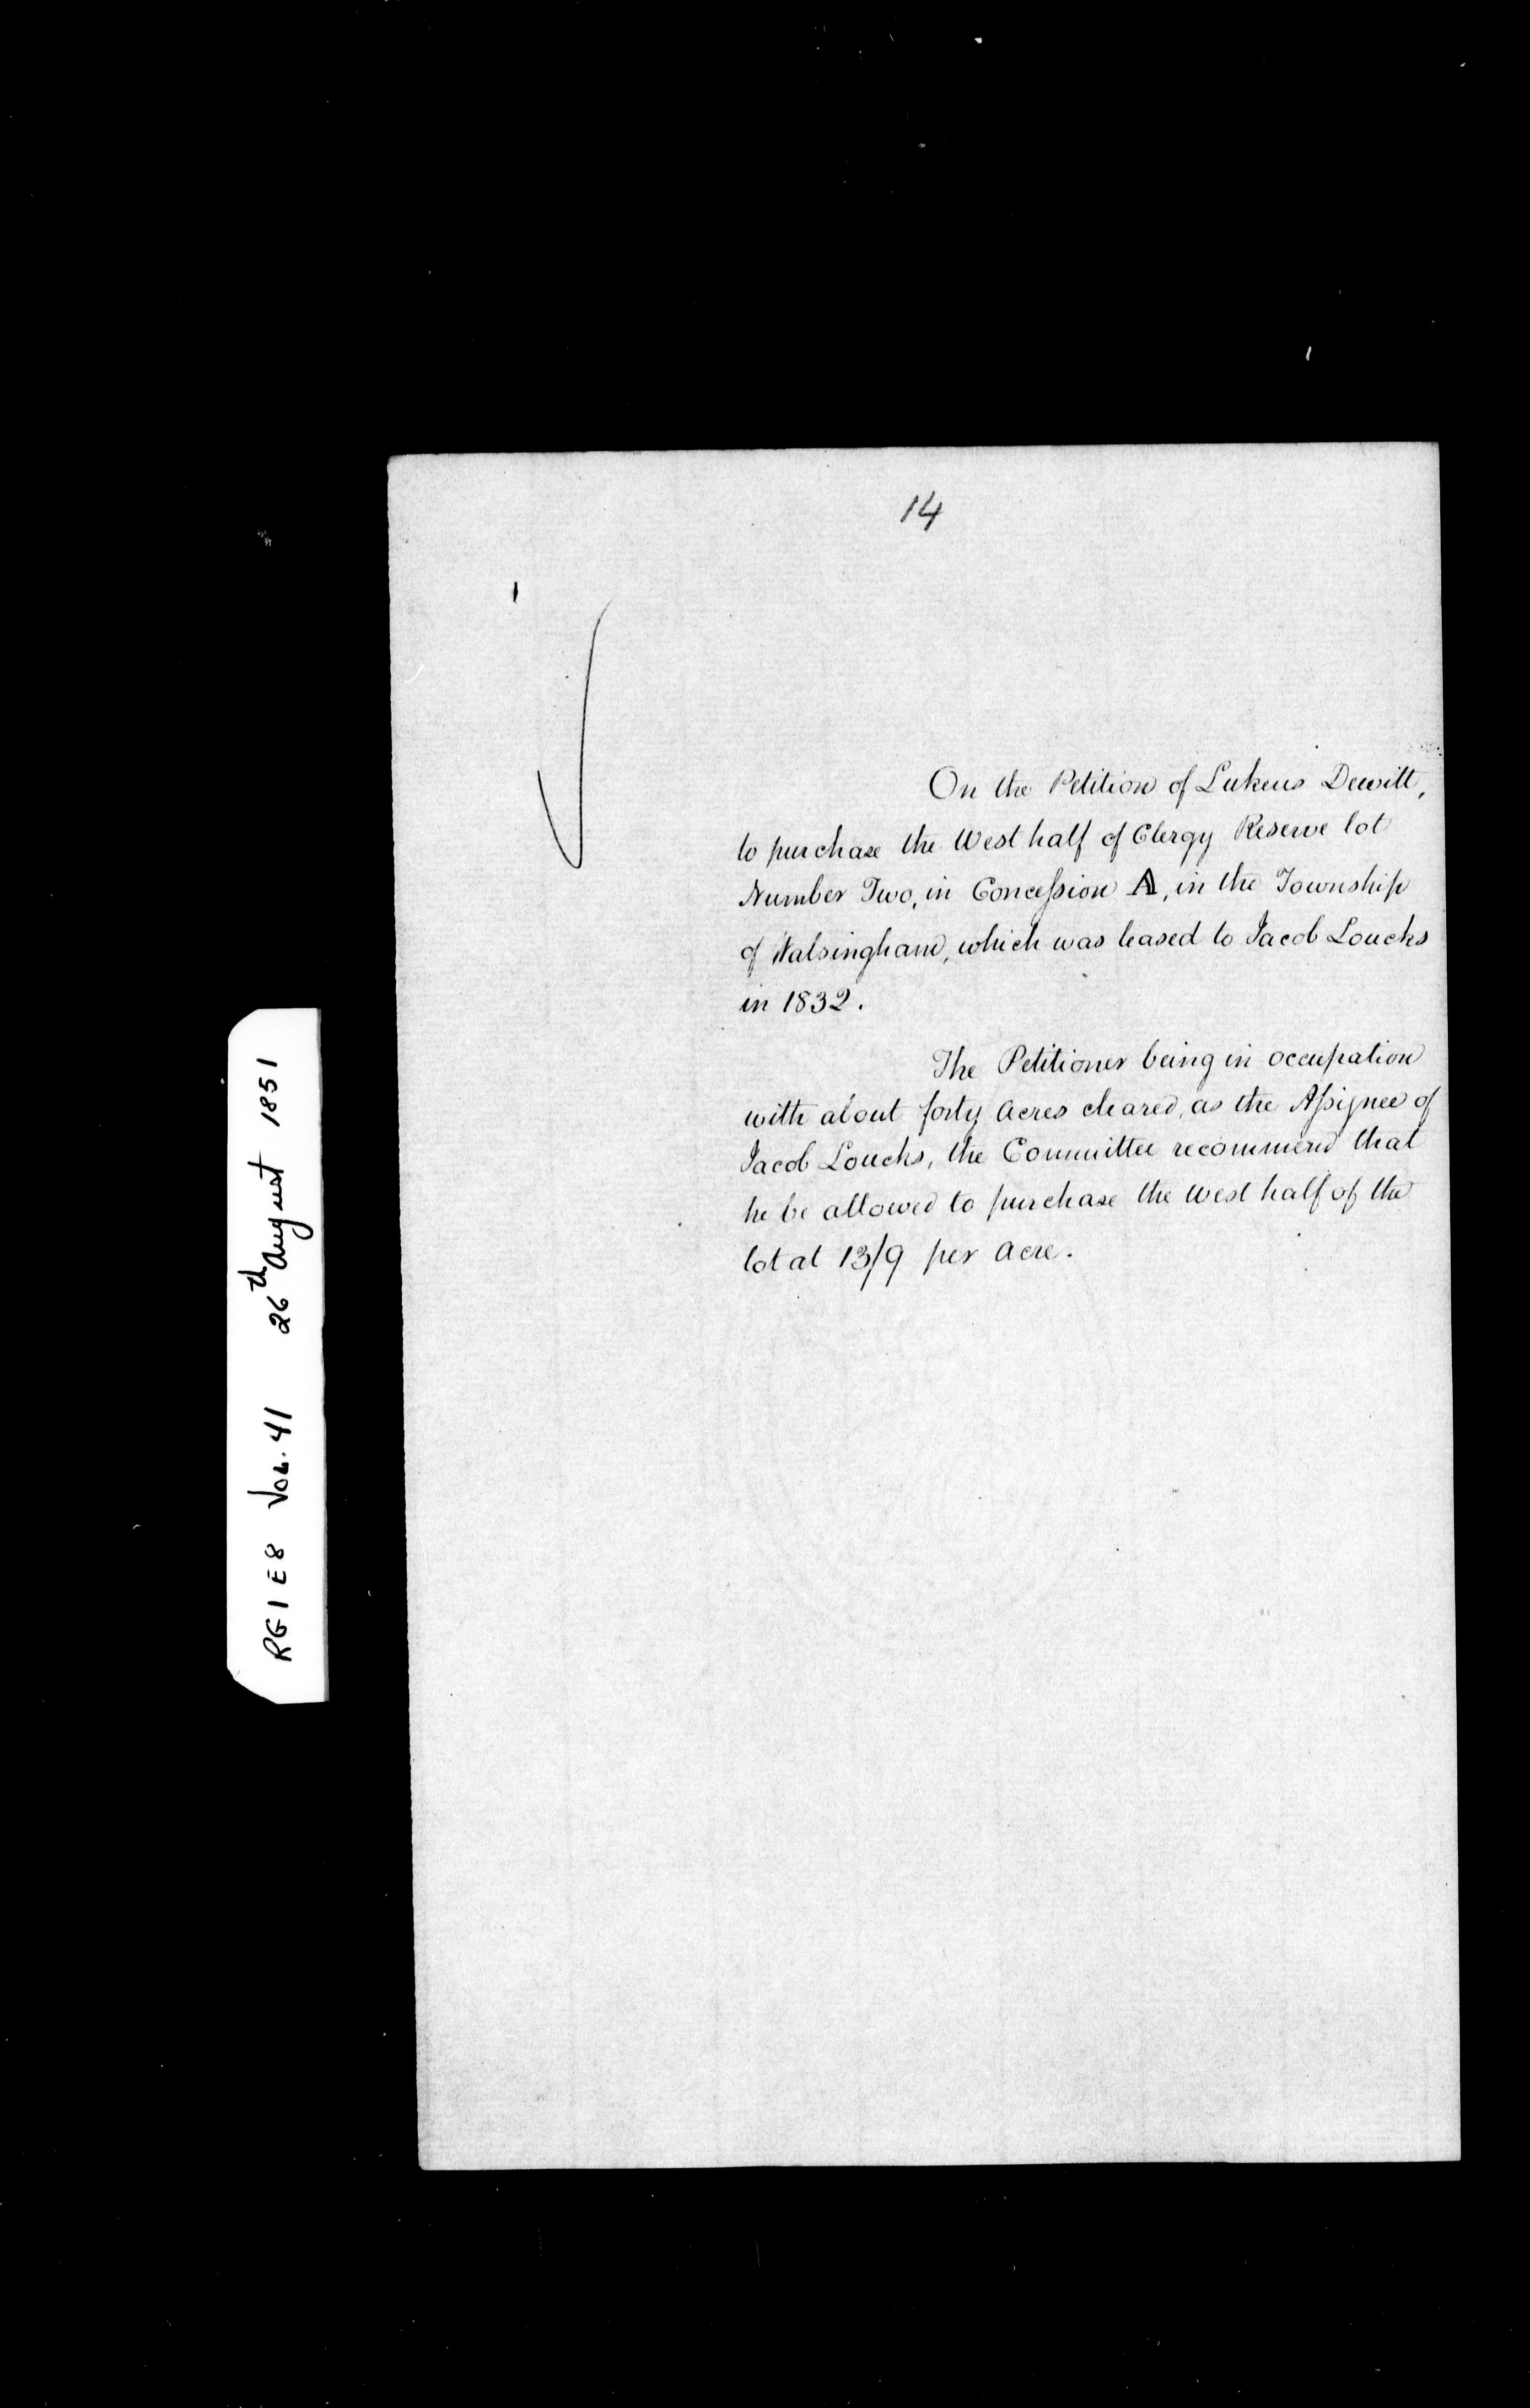 14
On the Petition of Lukens Dewitt,
to purchase the West half of Clergy Reserve lot
Number Two, in Concession A, in the Township
of Walsingham, which was leased to Jacob Loucks
in 1832.
The Petitioner being in occupation
with about forty Acres cleared, as the Assignee of
Jacob Loucks, the Committee recommend that
he be allowed to purchase the West half of the
lot at 13/9 per Acre.
RG1 E8 Vol. 41 26th August 1851